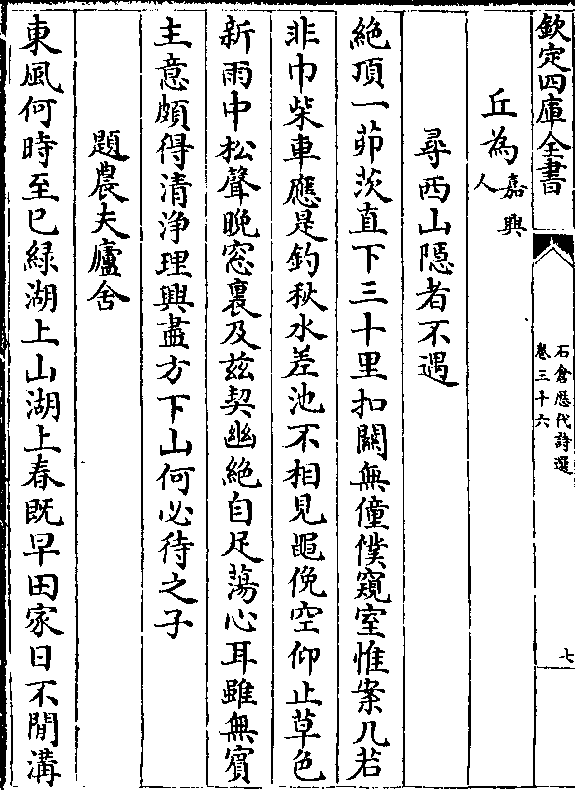 欽定四庫全書
石倉歴代詩選
卷三十六
七
丘為
嘉興
人
尋西山隠者不遇
絶頂一茆茨直下三十里扣關無僮僕窺室惟案几若
非巾柴車應是釣秋水差池不相見黽俛空仰止草色
新雨中松聲晚窓裏及兹契幽絶自足蕩心耳雖無賓
主意頗得清浄理興盡方下山何必待之子
題農夫廬舍
東風何時至已緑湖上山湖上春既早田家日不閒溝